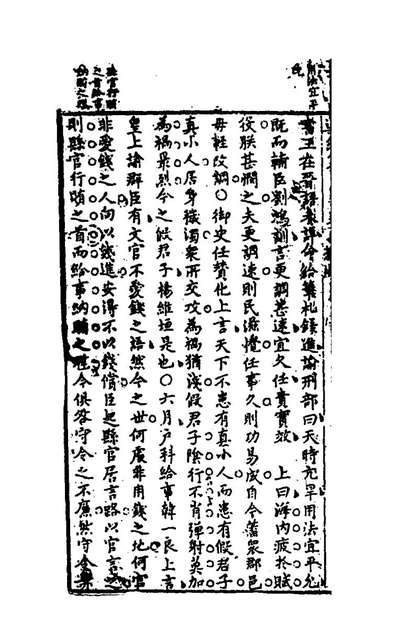 用法宜平允
書五在晉語奏詳令給筆札錄進諭刑部曰天時亢旱用法宜平允
既而輔臣劉鴻訓言更調甚速宜久任責實效　上曰海內疲於賦
役朕甚憫之夫更調速則民滋擾任事久則功易成自今藩衆郡邑
毋輕改調○御史任贊化上言天下不患有真小人而患有假君子
真小人居身穢濁衆所交攻為禍猶淺假君子陰行不肖彈射莫加
為禍最烈今之假君子楊維垣是也○六月戶科給事韓一良上言
皇上諭群臣有文官不愛錢之語然今之世何處非用錢之地何官
非愛錢之人向以錢進安得不以錢償臣起縣官居言路以官言之
則縣官行賄之首而給事納賄之魁今俱咎守令之不廉然守令亦
縣官行賄
之首給事
納賄之魁